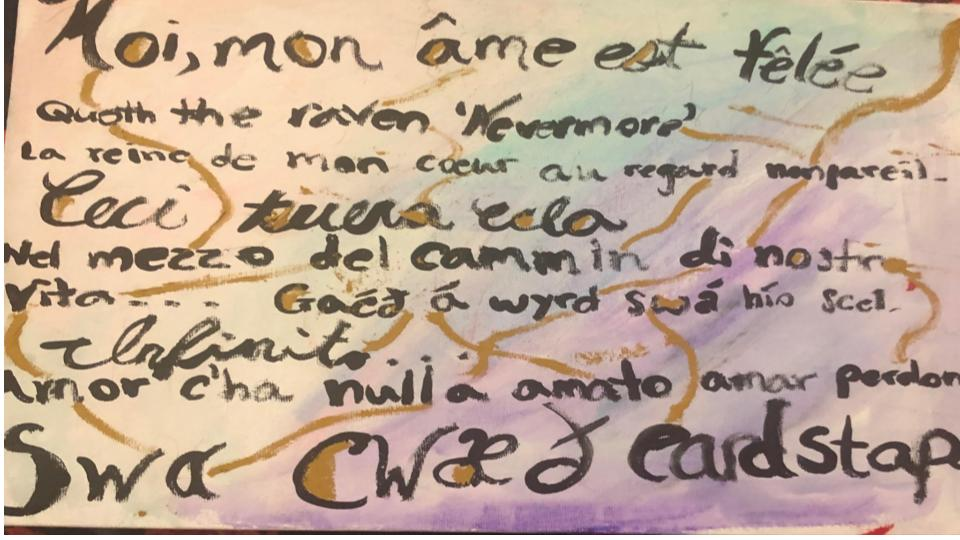 Moi, mon âme est fêlée
Quoth the raven 'Nevermore'
La reine de mon cœur au regard nonpareil.
Ceci tuera cela
Nel mezzo del cammin di nostra
Vita... Gaéð á wyrd swá hío scel.
Infinito...
Amor c'ha nulla amato amar perdon
Swa cwæð eardstap